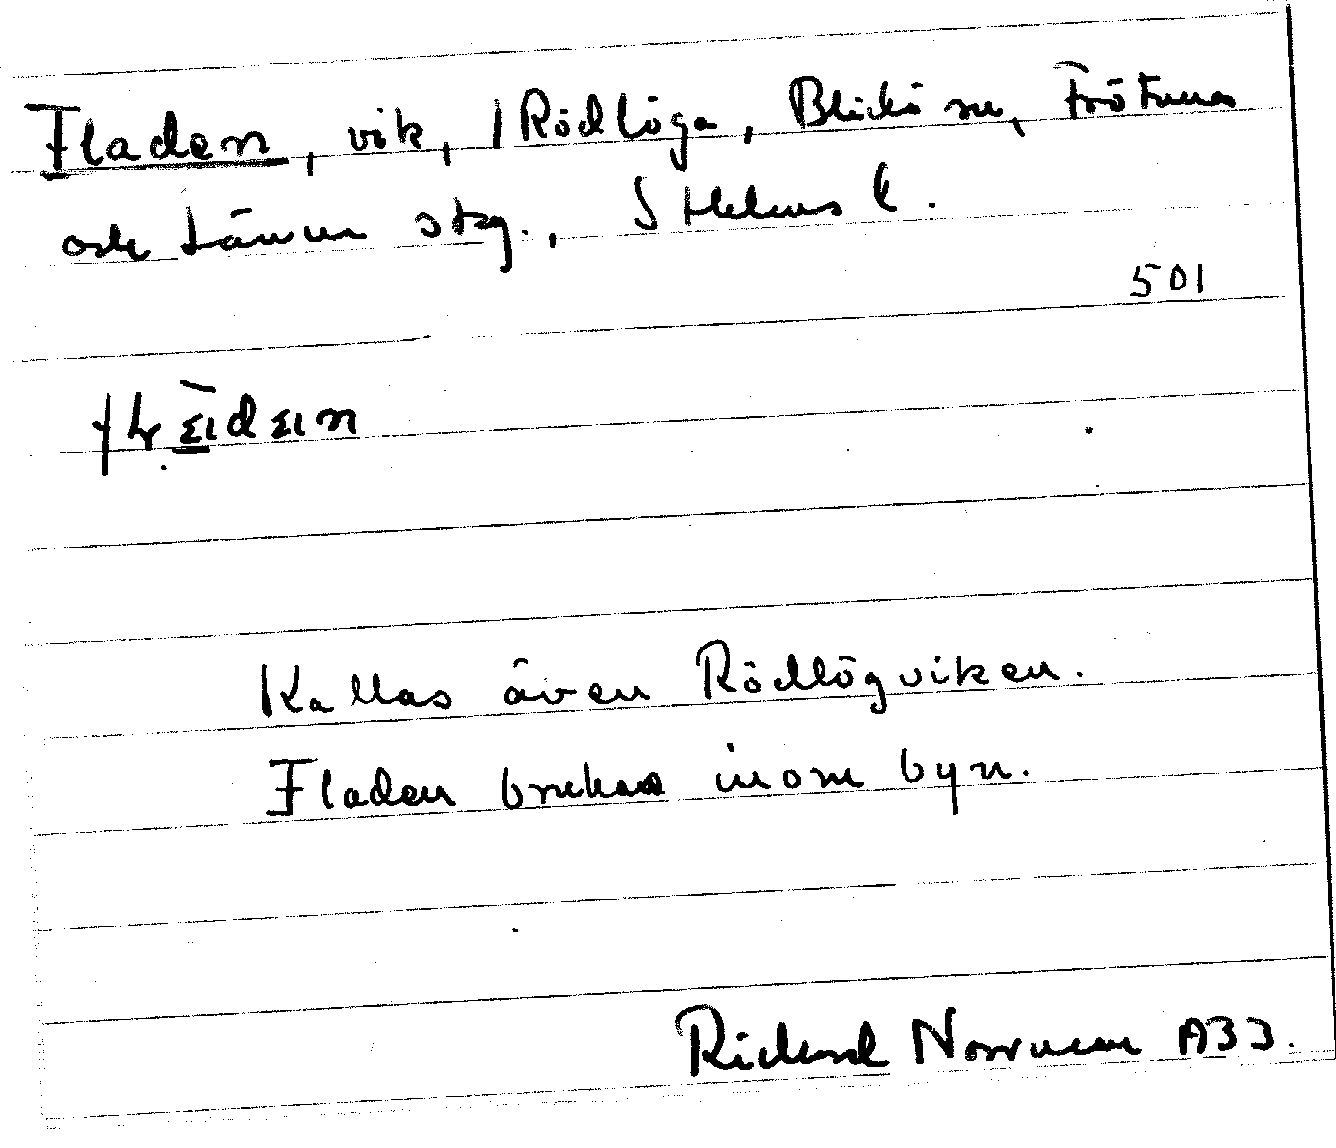 Fladen, vik, Rödlöga, Blidö sn, Frötuna
och Länna skg., Sthlms l.
501
Kallas även Rödlögviken.
Fladen brukas inom byn.
Rickard Norrman A33.